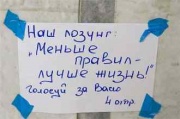 Наш лозунг:
„Меньше
правил-
лучше жизнь!"
Голосуй за Васю
4 отр.